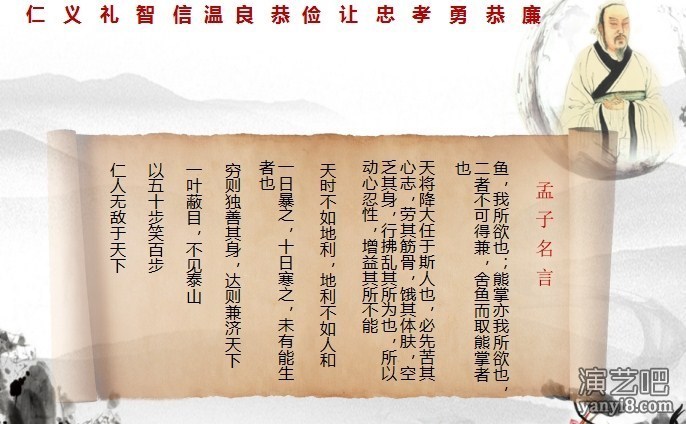 仁义礼智信温良恭俭让忠孝勇恭廉
孟子名言
鱼，我所欲也；熊掌亦我所欲也，
二者不可得兼，舍鱼而取熊掌者
也
天将降大任于斯人也，必先苦其
心志，劳其筋骨，饿其体肤，空
乏其身，行拂乱其所为也，所以
动心忍性，增益其所不能
天时不如地利，地利不如人和
一日暴之，十日寒之，未有能生
者也
穷则独善其身，达则兼济天下
一叶蔽目，不见泰山
以五十步笑百步
仁人无敌于天下
演艺吧
www.yanyi8.com